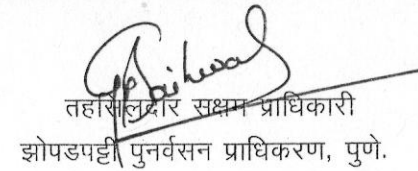 तहसिलदार सक्षम प्राधिकारी
झोपडपट्टी पुनर्वसन प्राधिकरण, पुणे.